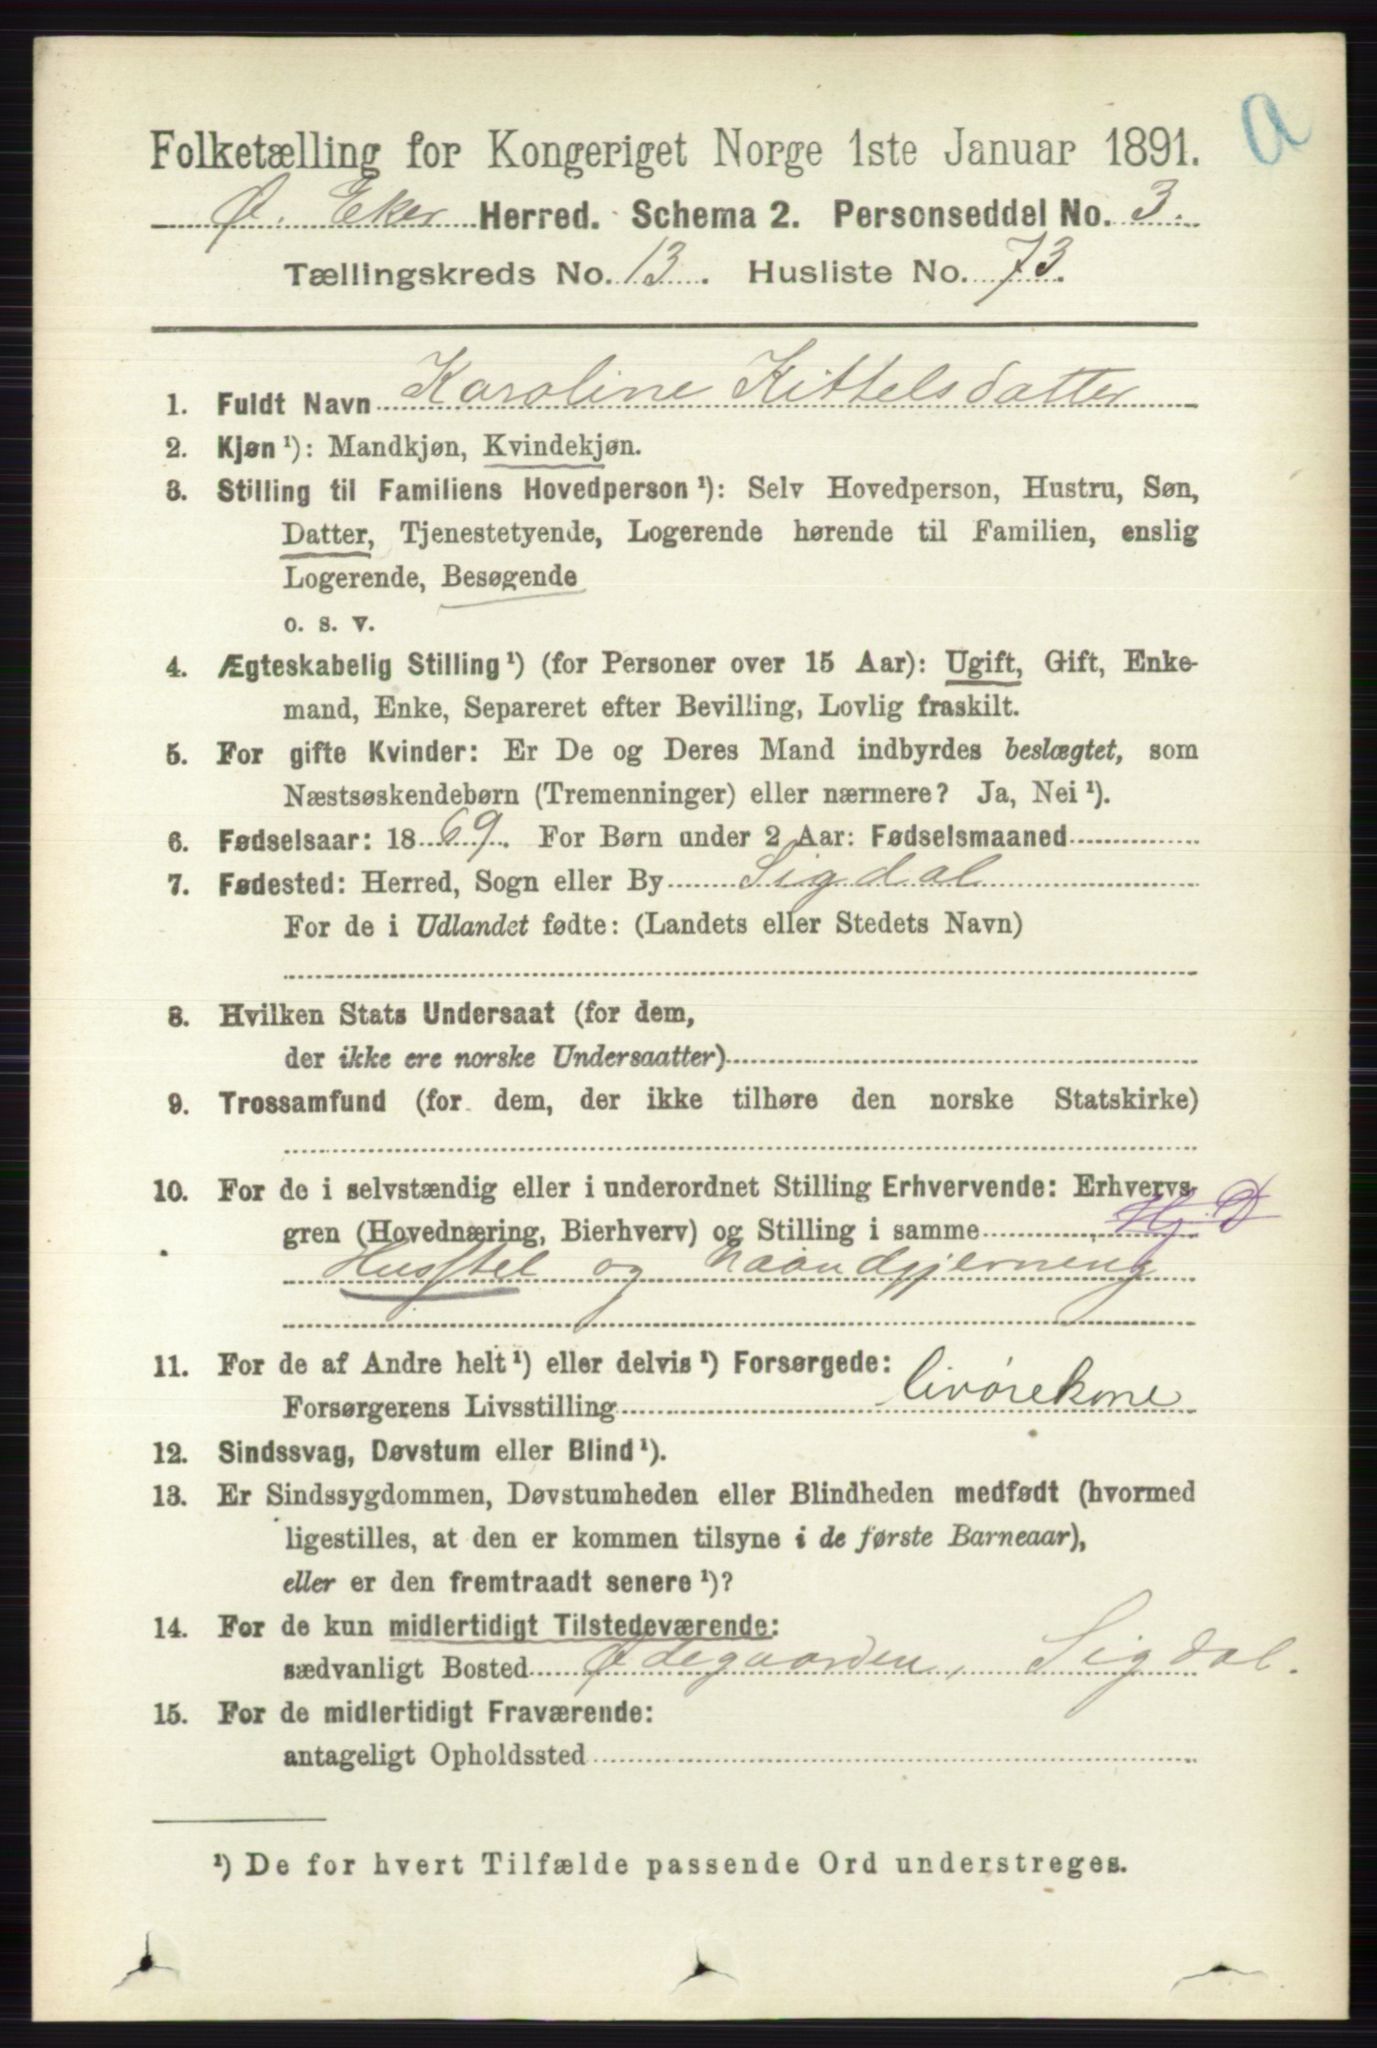 a
Folketælling for Kongeriget Norge 1ste Januar 1891.
Ø. Eker Herred. Schema 2. Personseddel No. 3.
Tællingskreds No. 13. Husliste No. 73.
1. Fuldt Navn Karoline Kittelsdatter
2. Kjøn¹): Mandkjøn, Kvindekjøn.
3. Stilling til Familiens Hovedperson¹): Selv Hovedperson, Hustru, Søn,
Datter, Tjenestetyende, Logerende hørende til Familien, enslig
Logerende, Besøgende
o. s. v.
4. Ægteskabelig Stilling¹) (for Personer over 15 Aar): Ugift, Gift, Enke-
mand, Enke, Separeret efter Bevilling, Lovlig fraskilt.
5. For gifte Kvinder: Er De og Deres Mand indbyrdes beslægtet, som
Næstsøskendebørn (Tremenninger) eller nærmere? Ja, Nei¹).
6. Fødselsaar: 1869. For Børn under 2 Aar: Fødselsmaaned
7. Fødested: Herred, Sogn eller By Sigdal
For de i Udlandet fødte: (Landets eller Stedets Navn)
8. Hvilken Stats Undersaat (for dem,
der ikke ere norske Undersaatter)
9. Trossamfund (for dem, der ikke tilhøre den norske Statskirke)
10. For de i selvstændig eller i underordnet Stilling Erhvervende: Erhvervs-
gren (Hovednæring, Bierhverv) og Stilling i samme Hj. D
Husstel og haandgjerning
11. For de af Andre helt¹) eller delvis¹) Forsørgede:
Forsørgerens Livsstilling livørekone
12. Sindssvag, Døvstum eller Blind¹).
13. Er Sindssygdommen, Døvstumheden eller Blindheden medfødt (hvormed
ligestilles, at den er kommen tilsyne i de første Barneaar),
eller er den fremtraadt senere¹)?
14. For de kun midlertidigt Tilstedeværende:
sædvanligt Bosted Ødegaarden, Sigdal.
15. For de midlertidigt Fraværende:
antageligt Opholdssted
¹) De for hvert Tilfælde passende Ord understreges.